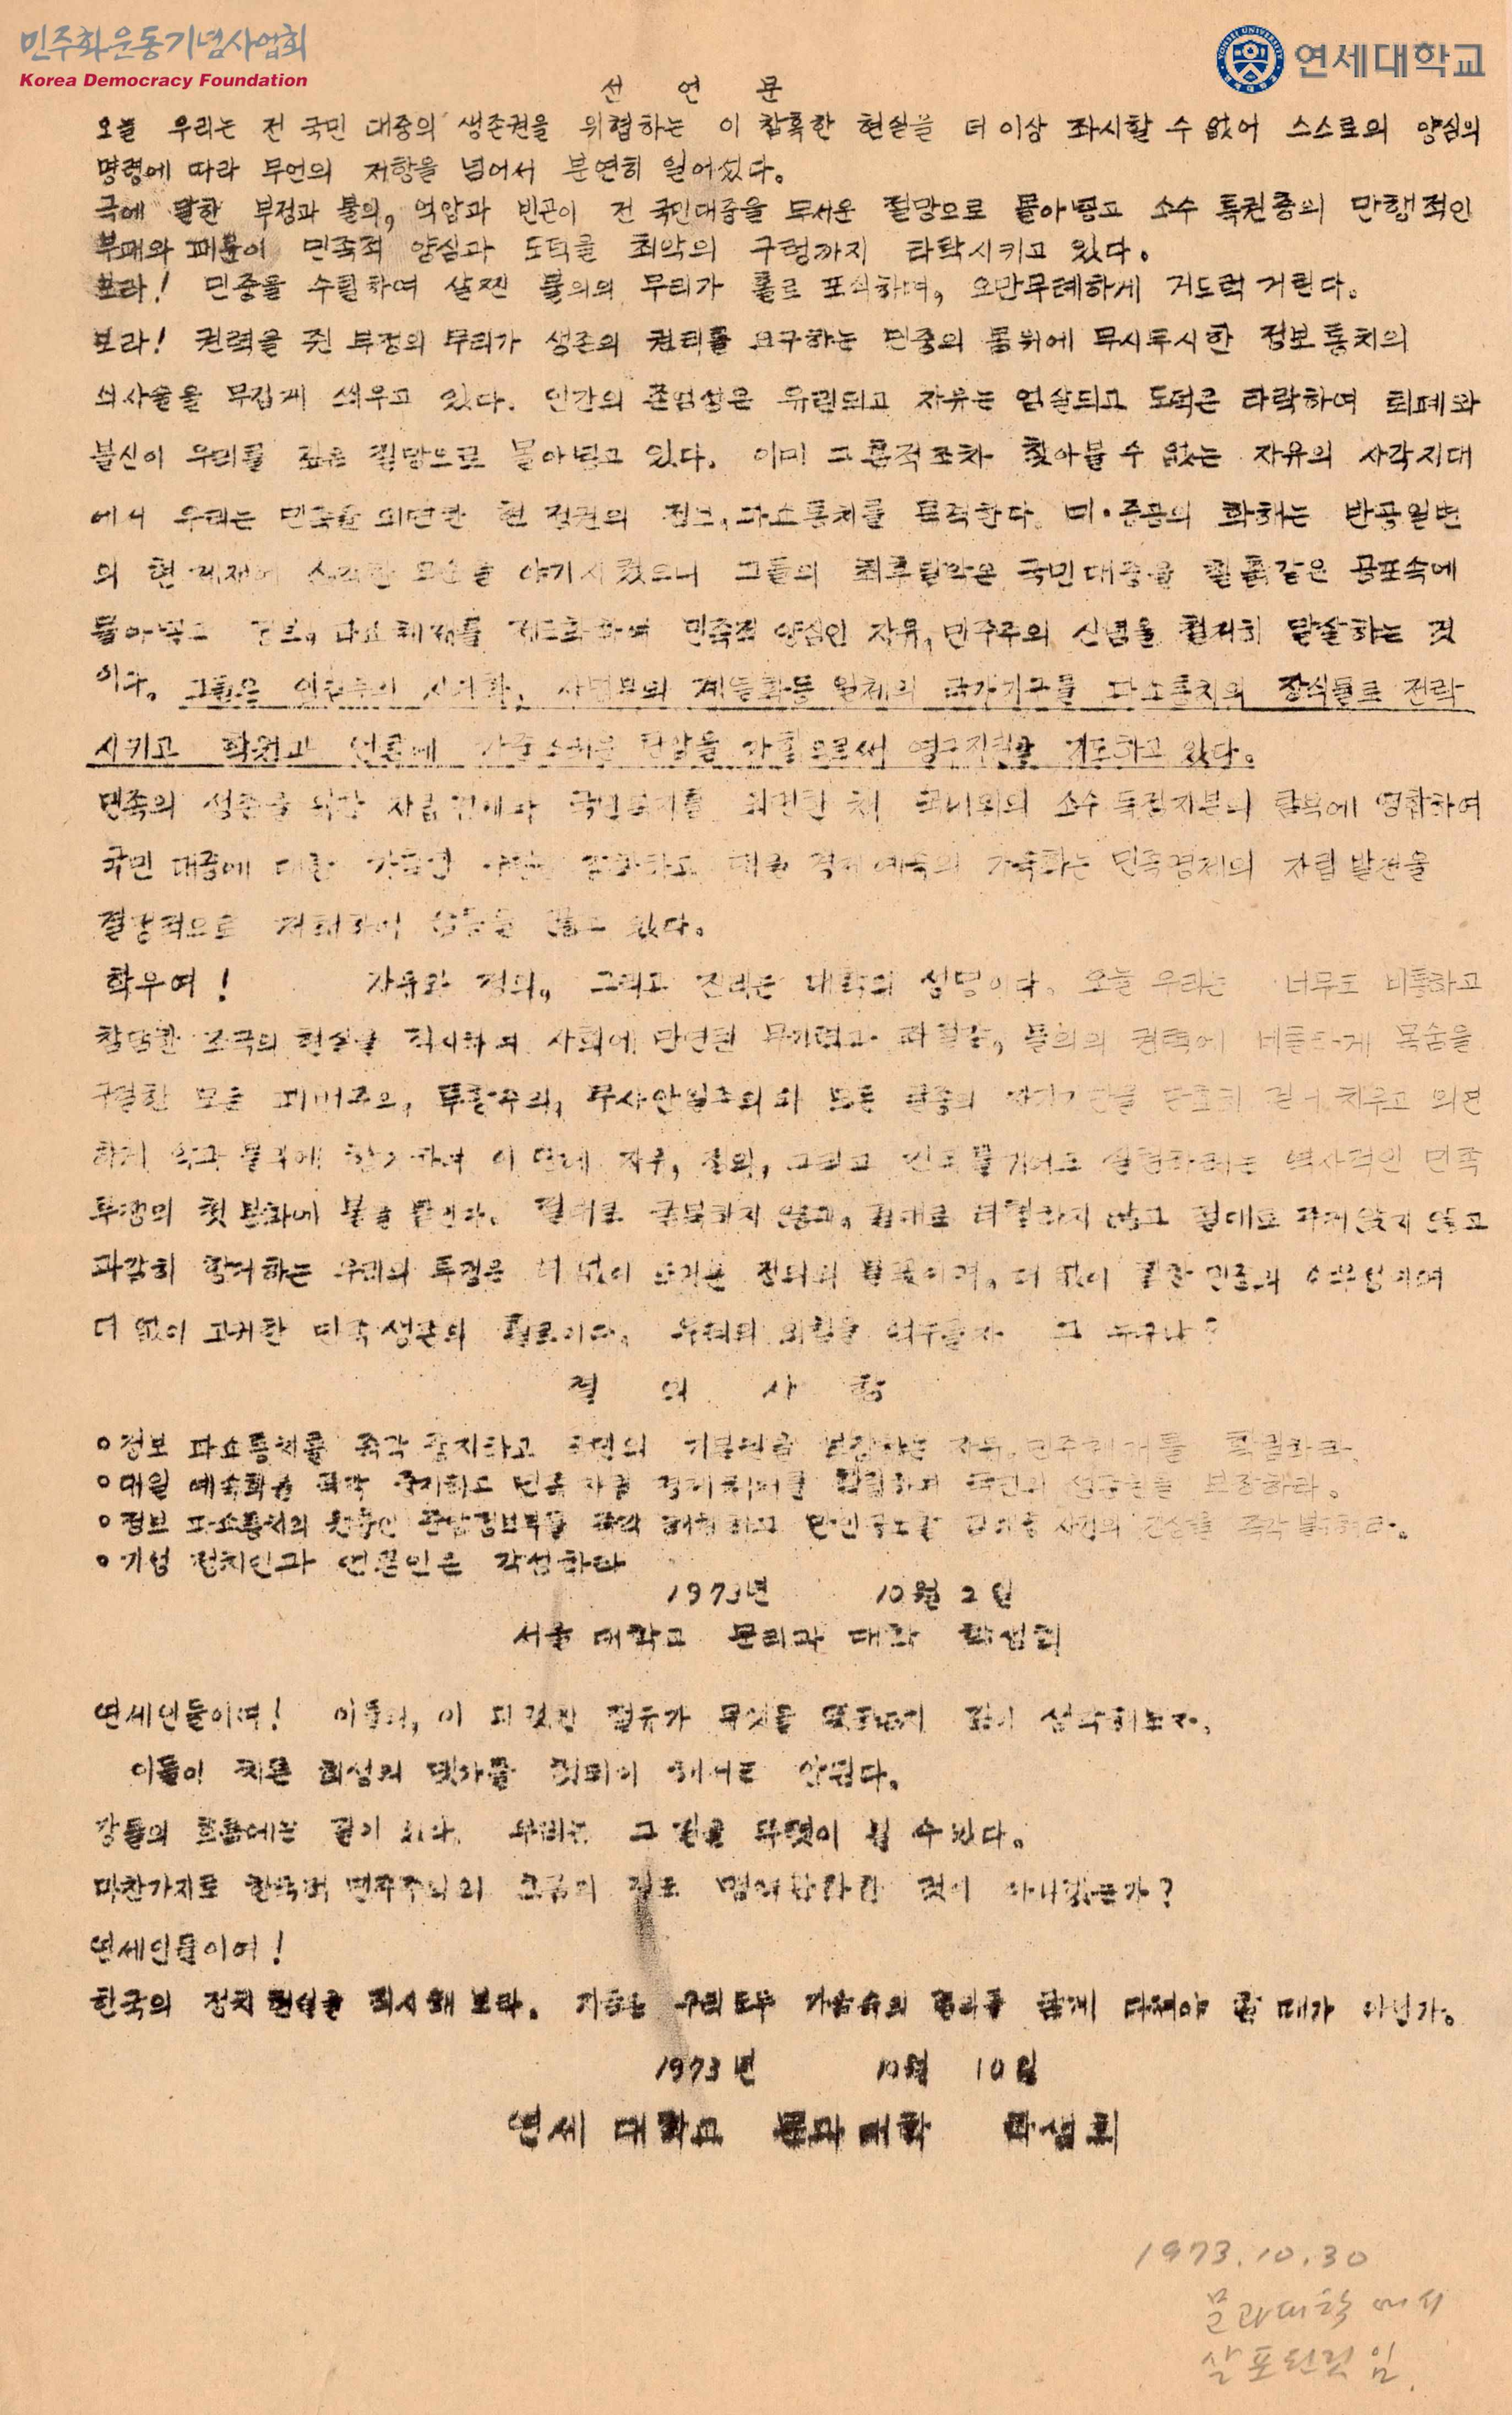 민주화운동기념사업회
Korea Democracy Foundation
YONSEI UNIVERSITY
연세대학교
선 언 문
오늘 우리는 전 국민 대중의 생존권을 위협하는 이 참혹한 현실을 더 이상 좌시할 수 없어 스스로의 양심의
명령에 따라 무언의 저항을 넘어서 분연히 일어섰다.
극에 달한 부정과 불의, 억압과 빈곤이 전 국민대중을 무서운 절망으로 몰아넣고 소수 특권층의 만행적인
부패와 패륜이 민족적 양심과 도덕을 최악의 구렁까지 타락시키고 있다.
보라! 민중을 수탈하여 살찐 불의의 무리가 홀로 포식하며, 오만무례하게 거드럭 거린다.
보라! 권력을 쥔 부정의 무리가 생존의 권리를 요구하는 민중의 몸위에 무시무시한 정보통치의
쇠사슬을 무겁게 씌우고 있다. 인간의 존엄성은 유린되고 자유는 엄살되고 도덕은 타락하여 퇴폐와
불신이 우리를 깊은 절망으로 몰아넣고 있다. 이미 그 흔적조차 찾아볼 수 없는 자유의 사각지대
에서 우리는 민족을 외면한 현 정권의 정보, 파쇼통치를 목격한다. 미·중공의 화해는 반공일변
의 현 체제에 심각한 모순을 야기시켰으니 그들의 최후발악은 국민대중을 칠흑같은 공포속에
몰아넣고 정보, 파쇼체제를 제도화하여 민족적 양심인 자유, 민주주의 신념을 철저히 말살하는 것
이다. 그들은 입법부의 시녀화, 사법부의 계열화등 일체의 국가기구를 파쇼통치의 장식물로 전락
시키고 학원과 언론에 가증스러운 탄압을 가함으로써 영구집권을 기도하고 있다.
민족의 생존을 위한 자립경제와 국민복지를 외면한 채 국내외의 소수 독점자본의 탐욕에 영합하여
국민 대중에 대한 가혹한 수탈을 강화하고 대일 경제예속의 가속화는 민족경제의 자립발전을
결정적으로 저해하며 있다.
학우여! 자유와 정의, 그리고 진리는 대학의 생명이다. 오늘 우리는 너무도 비통하고
참담한 조국의 현실을 직시하며 사회에 만연된 무기력과 좌절감, 불의의 권력에 비굴하게 목숨을
구걸한 모든 패배주의, 투항주의, 무사안일주의와 모든 굴종의 자기기만을 단호히 걷어치우고 의연
하게 악과 불의에 항거하여 이 땅에 자유, 정의, 그리고 진리를 기어코 실현하려는 역사적인 민족
투쟁의 첫 봉화에 불을 붙인다. 절대로 굴복하지 않고, 절대로 타협하지 않고 절대로 주저앉지 않고
과감히 항거하는 우리의 투쟁은 더 없이 뜨거운 정의의 불꽃이며, 더 없이 힘찬 민중의 아우성이며
더 없이 고귀한 민족 생존의 활로이다. 우리의 외침을 억누를자 그 누구냐?
결 의 사 항
o 정보 파쇼통치를 즉각 중지하고 국민의 기본권을 보장하는 자유, 민주체제를 확립하라.
o 대일 예속화를 즉각 중지하고 민족자립 경제체제를 확립하여 국민의 생존권을 보장하라.
o 정보 파쇼통치의 원흉인 중앙정보부를 즉각 해체하고 만인공노할 김대중 사건의 진상을 즉각 밝혀라.
o 기성 정치인과 언론인은 각성하라
1973년 10월 2일
서울 대학교 문리과 대학 학생회
연세인들이여! 이들의, 이 피맺힌 절규가 무엇을 뜻하는지 깊이 생각해보자.
이들이 치른 희생의 댓가를 헛되이 해서는 안된다.
강물의 흐름에는 길이 있다. 우리는 그 길을 무엇이 할 수 있다.
마찬가지로 한국적 민주주의의 흐름의 길도 명약관화한 것이 아니겠는가?
연세인들이여!
한국의 정치 현실을 직시해 보라. 지금은 우리모두 가슴속의 진리를 함께 다져야 할 때가 아닌가.
1973년 10월 10일
연세 대학교 문과대학 학생회
1973.10.30
문과대학에서
살포된것임.